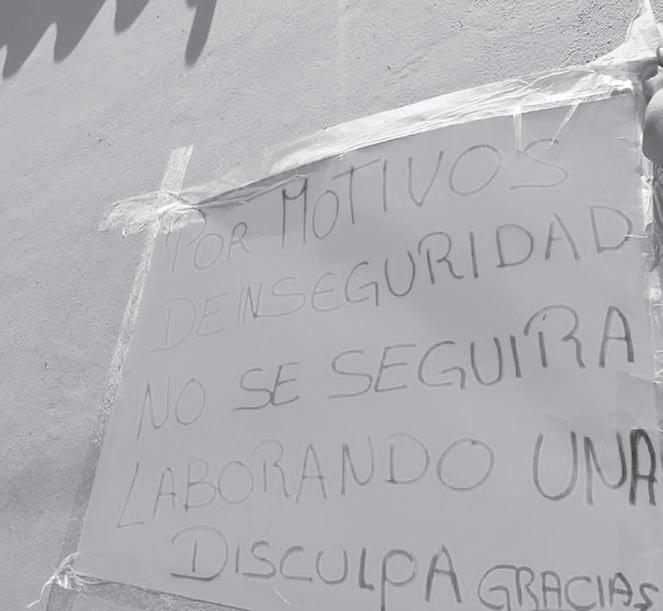 POR MOTIVOS
DE INSEGURIDAD
NO SE SEGUIRA
LABORANDO UNA
DISCULPA GRACIAS